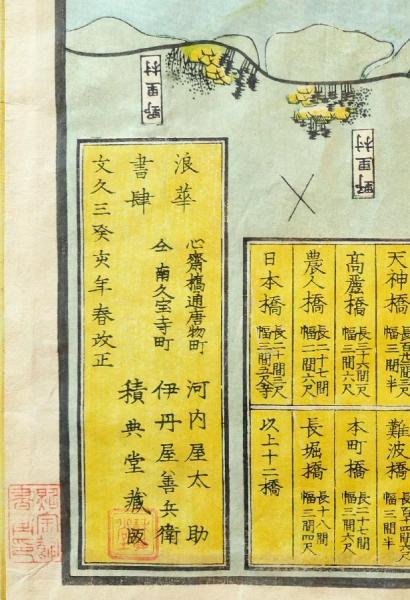 野里村
野里村
浪華
書肆
心齋橋通唐物町
河内屋太助
仝南久宝寺町
伊丹屋善兵衛
積典堂藏版
文久三癸亥年春改正
天神橋
幅三間半
高麗橋
長三十六間二尺
幅三間六尺
農人橋
長二十七間
幅二間六尺
日本橋
長二十間三尺
難波橋
幅三間半
本町橋
長二十七間
幅三間六尺
長堀橋
長十八間
幅三間四尺
以上十二橋